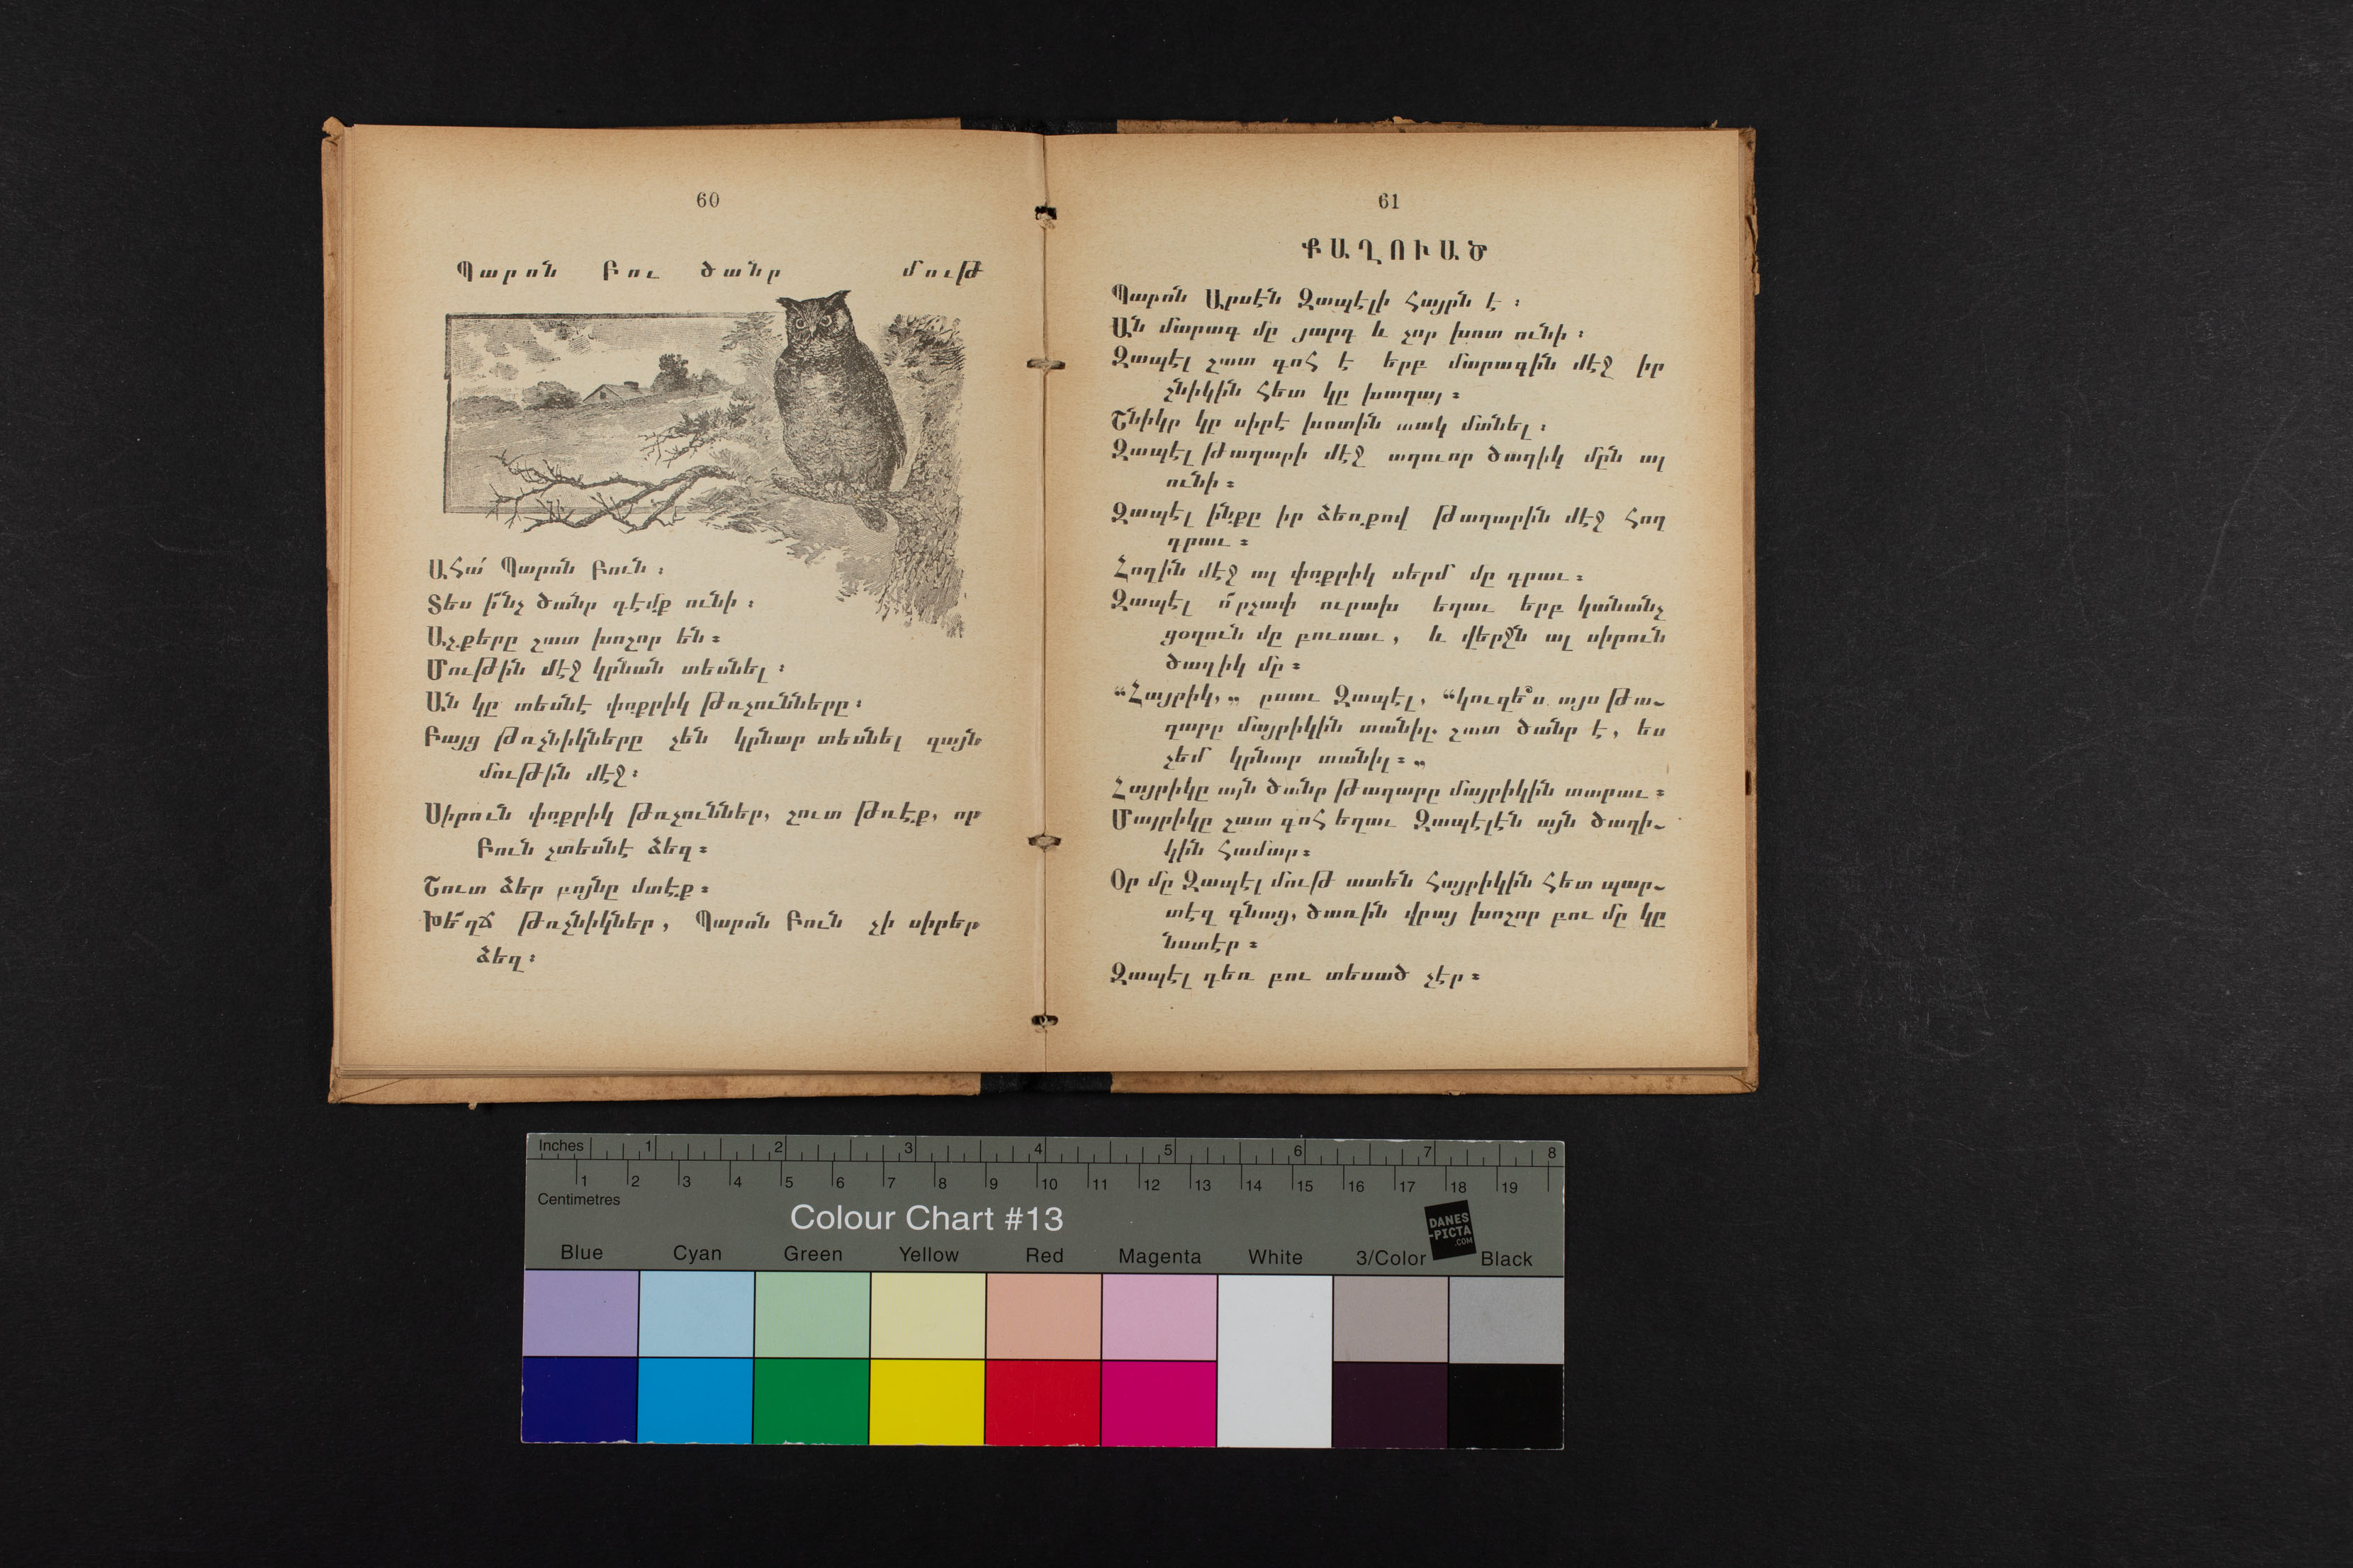 60
Պարոն Բու ծանր մութ
Ահա՛ Պարոն Բուն։
Տես ի՜նչ ծանր դէմք ունի։
Աչքերը շատ խոշոր են։
Մութին մէջ կրնան տեսնել։
Ան կը տեսնէ փոքրիկ թռչունները։
Բայց թռչնիկները չեն կրնար տեսնել զայն
մութին մէջ։
Սիրուն փոքրիկ թռչուններ, շուտ թռէք, որ
Բուն չտեսնէ ձեզ։
Շուտ ձեր բոյնը մտէք։
Խե՜ղճ թռչնիկներ, Պարոն Բուն չի սիրեր
ձեզ։
61
ՔԱՂՈՒԱԾ
Պարոն Արսէն Զապէլի հայրն է։
Ան մարագ մը յարդ և չոր խոտ ունի։
Զապէլ շատ գոհ է երբ մարագին մէջ իր
շնիկին հետ կը խաղայ։
Շնիկը կը սիրէ խոտին տակ մտնել։
Զապէլ թաղարի մէջ աղուոր ծաղիկ մըն ալ
ունի։
Զապէլ ինքը իր ձեռքով թաղարին մէջ հող
դրաւ։
Հողին մէջ ալ փոքրիկ սերմ մը դրաւ։
Զապէլ ո՜րչափ ուրախ եղաւ երբ կանանչ
ցօղուն մը բուսաւ, և վերջն ալ սիրուն
ծաղիկ մը։
“Հայրիկ,„ ըսաւ Զապէլ, “կուզե՞ս այս թա-
ղարը մայրիկին տանիլ. շատ ծանր է, ես
չեմ կրնար տանիլ։„
Հայրիկը այն ծանր թաղարը մայրիկին տարաւ։
Մայրիկը շատ գոհ եղաւ Զապէլէն այն ծաղի-
կին համար։
Օր մը Զապէլ մութ ատեն հայրիկին հետ պար-
տէզ գնաց, ծառին վրայ խոշոր բու մը կը
նստէր։
Զապէլ դեռ բու տեսած չէր։
Inches 1 2 3 4 5 6 7 8
1 2 3 4 5 6 7 8 9 10 11 12 13 14 15 16 17 18 19
Centimetres
Colour Chart #13
DANES
-PICTA
.COM
Blue Cyan Green Yellow Red Magenta White 3/Color Black